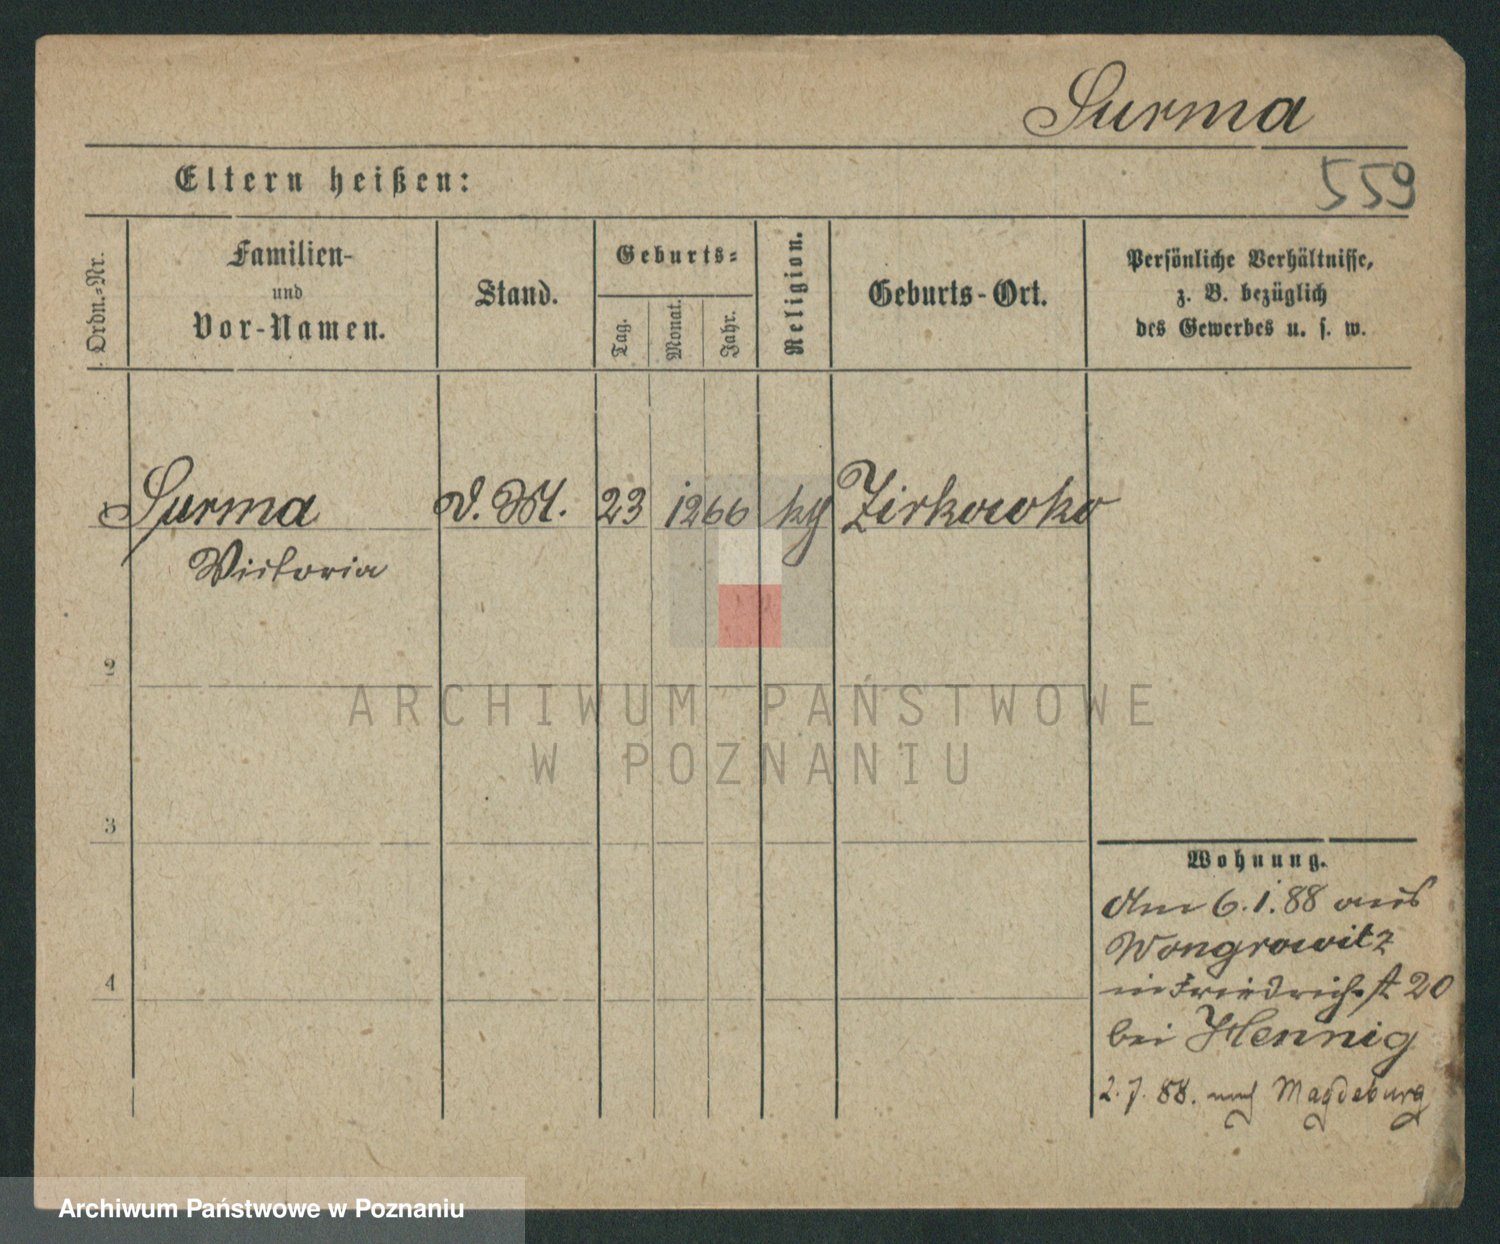 Surma
Eltern heißen:
559
Ordn.-Nr.
Familien-
und
Vor-Namen.
Stand.
Geburts-
Tag.
Monat.
Jahr.
Religion.
Geburts-Ort.
Persönliche Verhältnisse,
z. B. bezüglich
des Gewerbes u. s. w.
Surma
Victoria
d. M. 23 12 66 kg Zirkowko
2
3
4
ARCHIWUM PAŃSTWOWE
W POZNANIU
Wohnung.
Am 6.1.88 aus
Wongrowitz
in Friedrichst 20
bei Hennig
2.7.88. nach Magdeburg
Archiwum Państwowe w Poznaniu